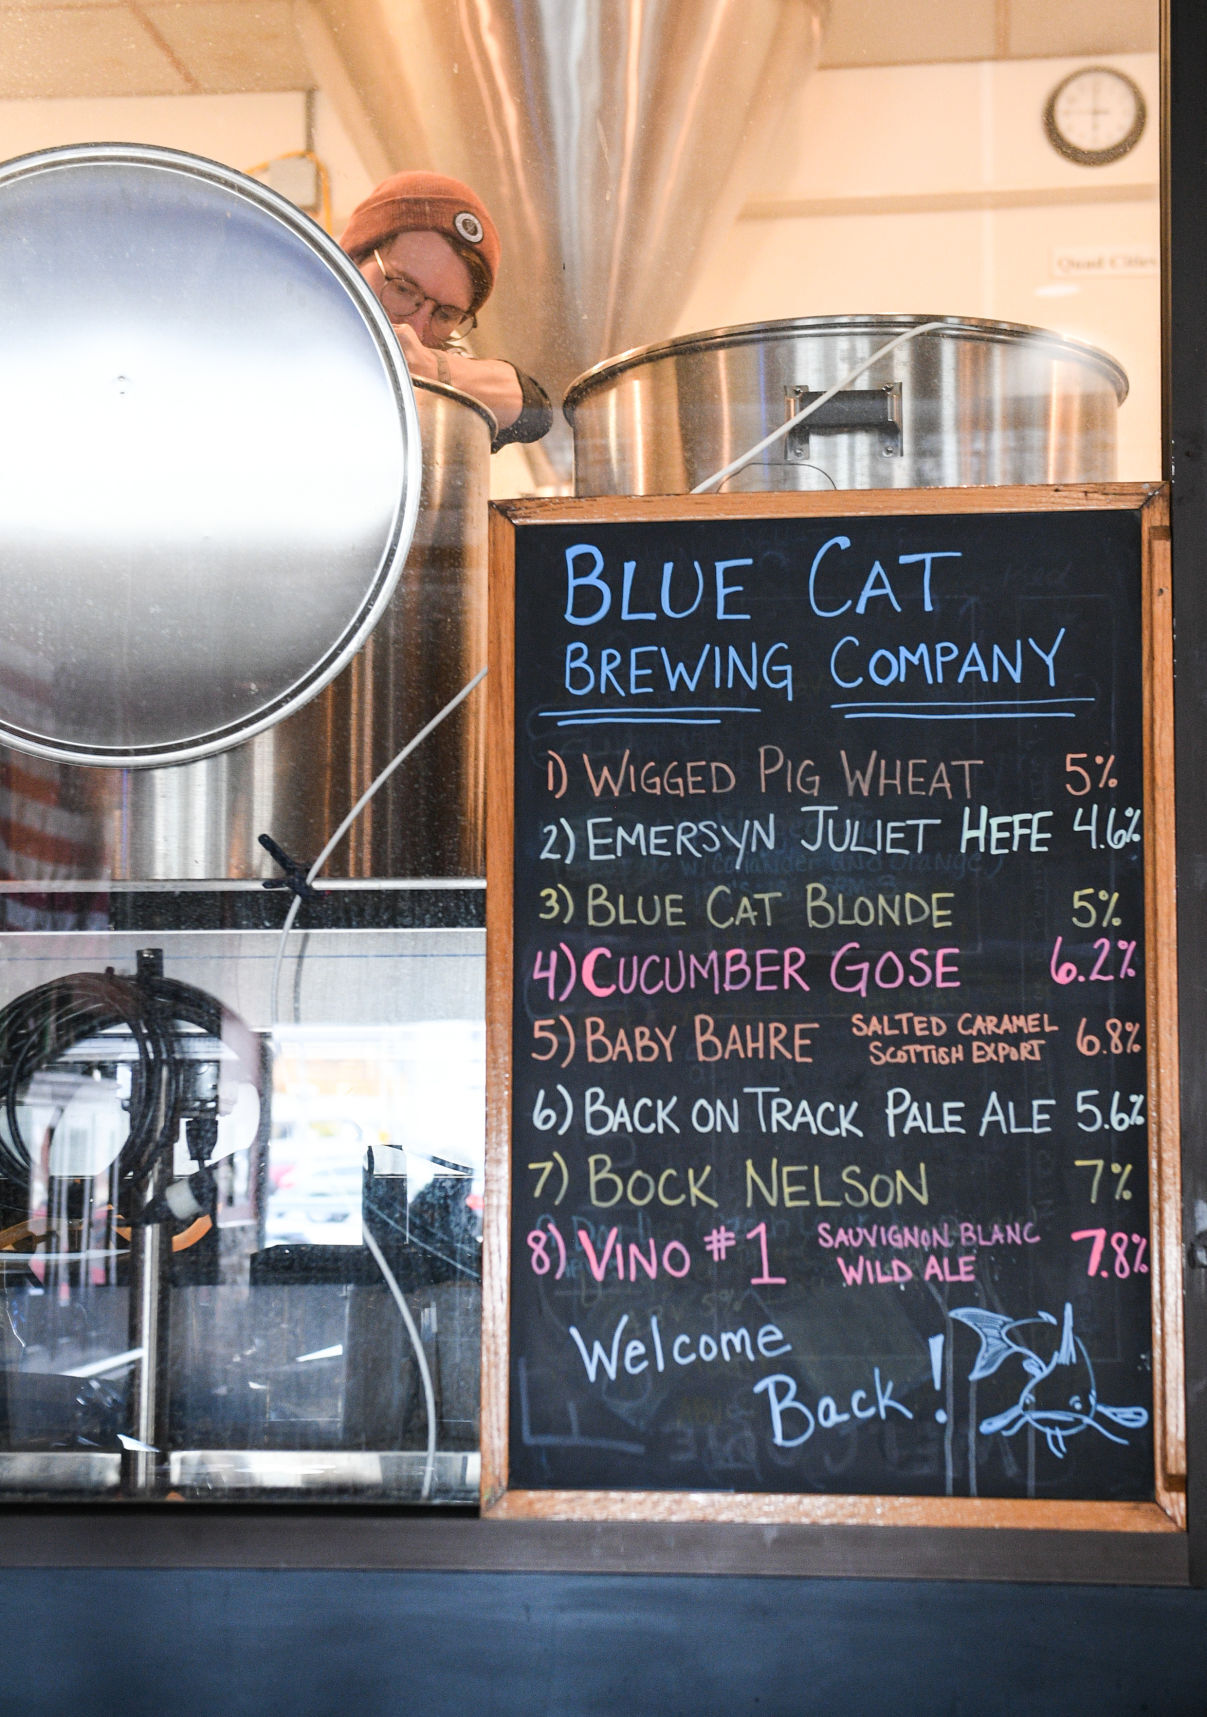 Quad Cities
BLUE CAT
BREWING COMPANY
1) WIGGED PIG WHEAT 5%
2) EMERSYN JULIET HEFE 4.6%
3) BLUE CAT BLONDE 5%
4) CUCUMBER GOSE 6.2%
5) BABY BAHRE SALTED CARAMEL SCOTTISH EXPORT 6.8%
6) BACK ON TRACK PALE ALE 5.6%
7) BOCK NELSON 7%
8) VINO #1 SAUVIGNON BLANC WILD ALE 7.8%
Welcome
Back!